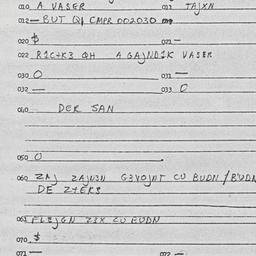 010 A VASER 011 TAJXN
012 — BUT QI CMPR 002030
020 $ 021 —
022 R1C+K3 QH A GAJND1K VASER
030 0 031 —
032 — 033 0
040 DER SAN
050 0
060 ZAJ ZAJN3N G3VOJNT CU BUDN/BUDN
DE Z+ERS
061 FLEJGN Z3X CU BUDN
070 $
071 — 072 —